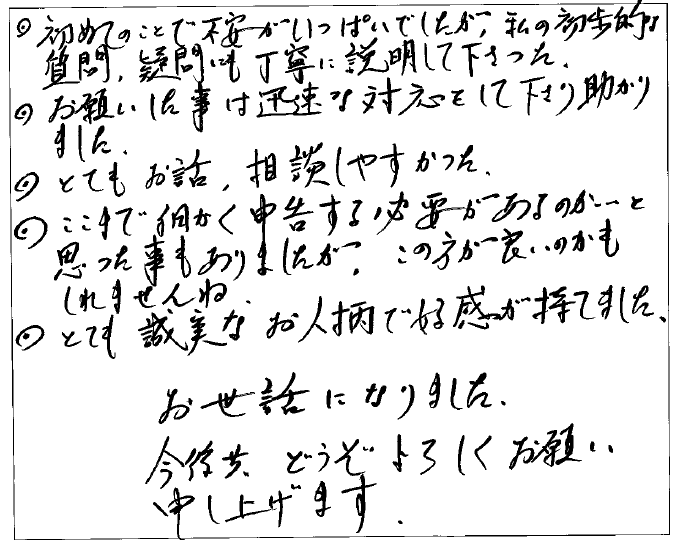 ◎ 初めてのことで不安がいっぱいでしたが、私の初歩的な
質問、疑問にも丁寧に説明して下さった。
◎ お願いした事は迅速な対応をして下さり助かり
ました。
◎ とてもお話、相談しやすかった。
◎ ここまで細かく申告する必要があるのか…と
思った事もありましたが、この方が良いのかも
しれませんね。
◎ とても誠実なお人柄で好感が持てました、
お世話になりました。
今後共、どうぞよろしくお願い
申し上げます.